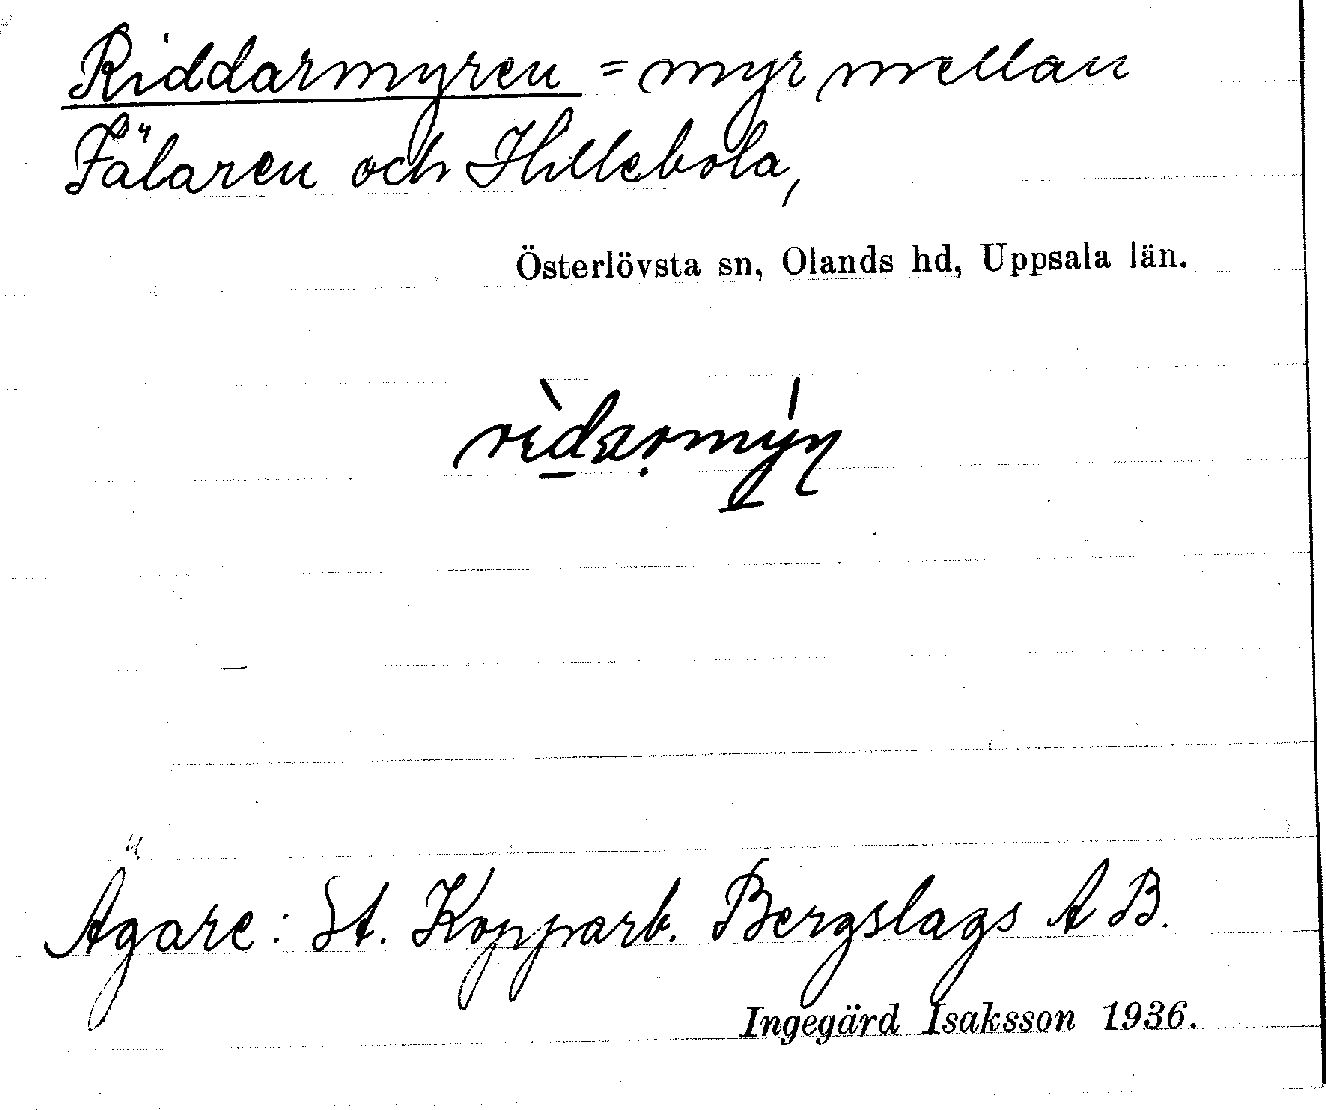 Riddarmyren = myr mellan
Fälaren och Hillebola,
Österlövsta sn, Olands hd, Uppsala län.
Ägare: St. Kopparb. Bergslags A B.
Ingegärd Isaksson 1936.